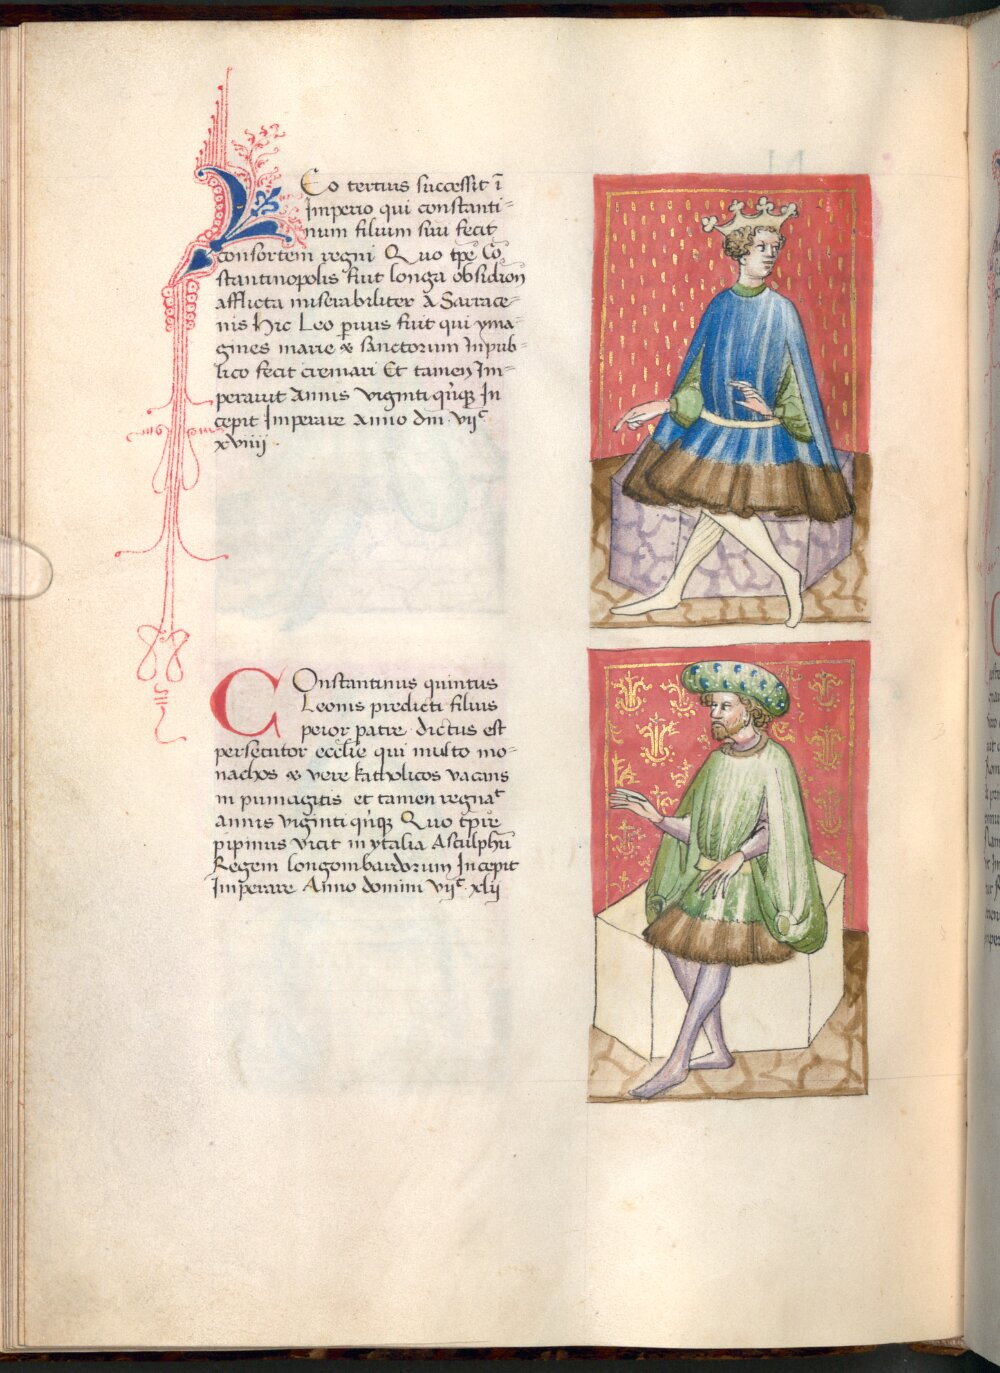 LEo tertius successit ī
Imperio qui constanti=
num filium suū fecit
consortem regni Quo tp̄e Cō
stantinopolis fuit longa obsidiōn
afflicta miserabiliter A Sarrace=
nis Hic Leo p̄uus fuit qui yma=
gines marie & sanctorum Inpub=
lico fecit cremari Et tamen Im=
perauit Annis viginti qūqȝ In
cepit Imperare Anno dm̄ · vijᶜ
xviiij ·
COnstantinus quintus
Leonis predicti filius
peior patre · dictus est
persecutor ecc̄lie qui multo mo=
nachos & vere katholicos vacans
in pumagitis et tamen regnaᵗ
annis viginti qūqȝ Quo tp̄re
pipinus vicit in ytalia Asculphū
Regem longombardorum Incepit
Imperare Anno domini vijᶜ · xlij